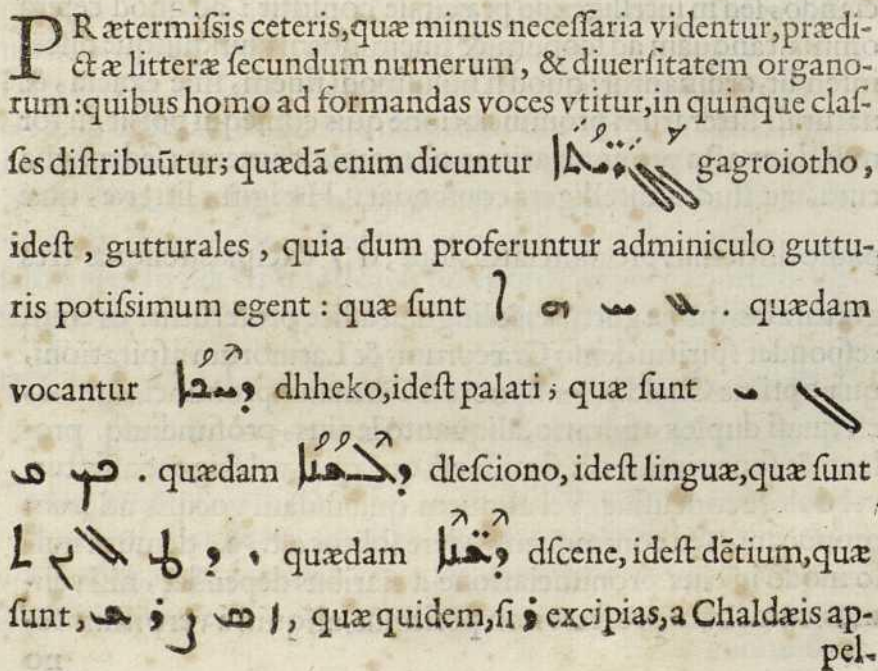 PRætermiſsis ceteris,quæ minus neceſſaria videntur,prædi-
ctæ litteræ ſecundum numerum, & diuerſitatem organo-
rum:quibus homo ad formandas voces vtitur,in quinque claſ-
ſes diſtribuūtur; quædā enim dicuntur gagroiotho,
ideſt, gutturales, quia dum proferuntur adminiculo guttu-
ris potiſsimum egent: quæ ſunt ܐ ܗ ܚ ܥ. quædam
vocantur ܕܚܟܐ dhheko,ideſt palati; quæ ſunt ܝ ܓ
ܩ ܟ. quædam ܕܠܫܢܐ dleſciono, ideſt linguæ,quæ ſunt
ܬ ܢ ܠ ܛ ܕ. quædam ܕܫ̈ܢܐ dſcene, ideſt dētium,quæ
ſunt, ܫ ܪ ܨ ܣ ܙ, quæ quidem,ſi ܪ excipias,a Chaldæis ap-
pel-